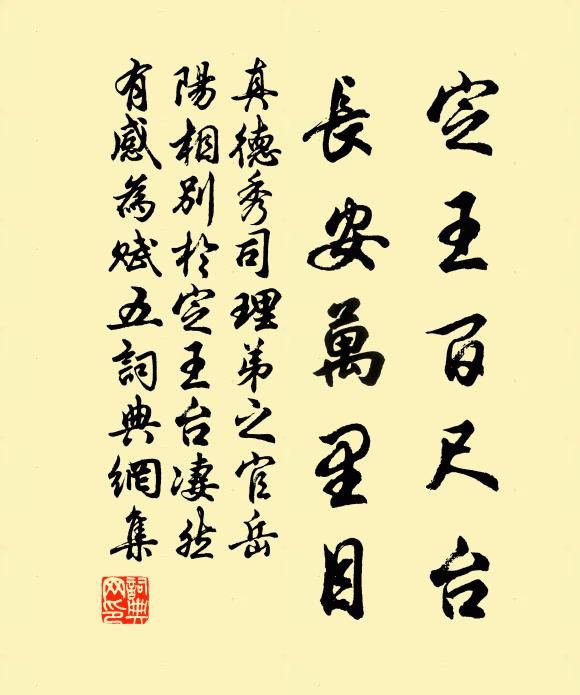 定王百尺台
長安萬里目
真德秀司理弟之官岳
陽相別於定王台凄然
有感為賦五詞典網集
詞典网印